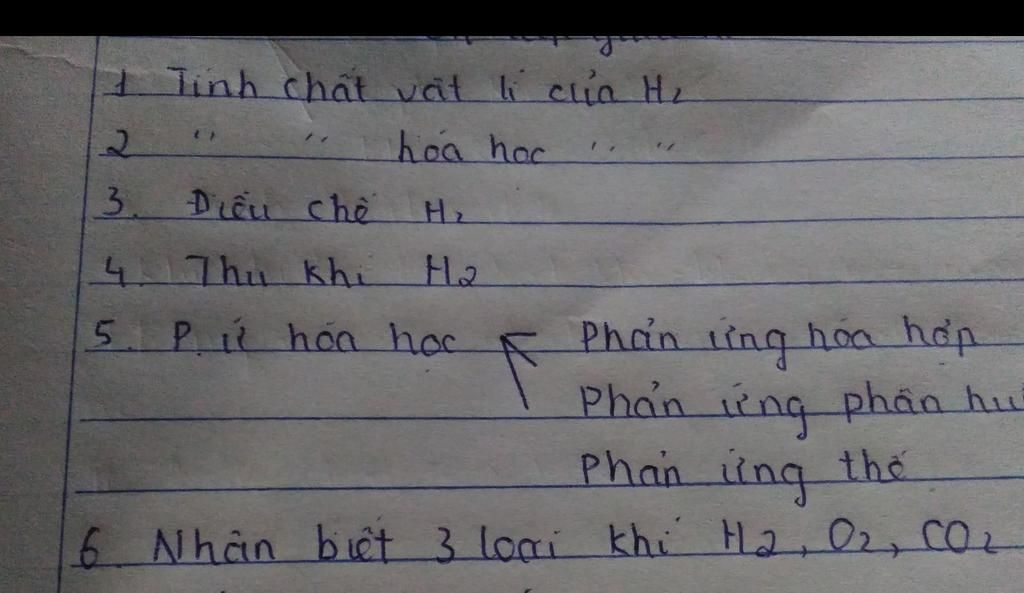 1 Tính chất vật lí của H2
2 " " hóa học " "
3. Điều chế H2
4. Thu khí H2
5. P.ứ hóa học Phản ứng hóa hợp
Phản ứng phân
Phản ứng thế
6. Nhận biết 3 loại khí H2, O2, CO2